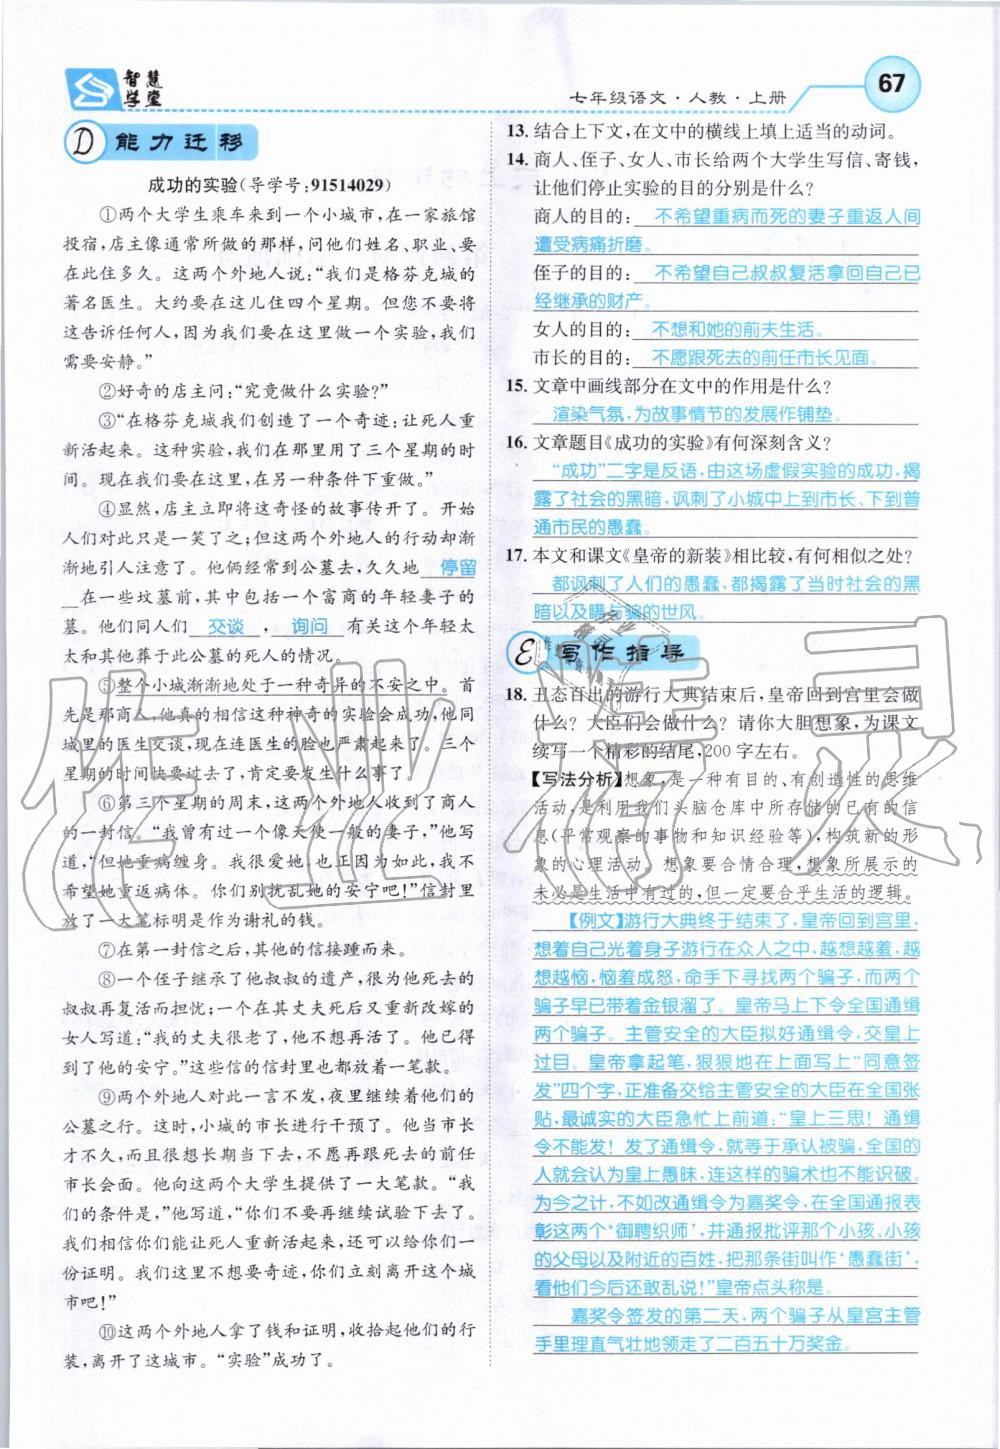 智慧学堂
七年级语文·人教·上册
67
D 能力迁移
成功的实验(导学号:91514029)
①两个大学生乘车来到一个小城市,在一家旅馆
投宿,店主像通常所做的那样,问他们姓名、职业、要
在此住多久。这两个外地人说:“我们是格芬克城的
著名医生。大约要在这儿住四个星期。但您不要将
这告诉任何人,因为我们要在这里做一个实验,我们
需要安静。”
②好奇的店主问:“究竟做什么实验?”
③“在格芬克城我们创造了一个奇迹:让死人重
新活起来。这种实验,我们大约用了三个星期的时
间。现在我们要在这里,在另一种条件下重做。”
④显然,店主立即将这奇怪的故事传开了。开始
人们对此只是一笑了之;但这两个外地人的行动却渐
渐地引人注意了。他俩经常到公墓去,久久地 停留
在一些坟墓前,其中包括一个富商的年轻妻子的
墓。他们同人们 交谈 , 询问 有关这个年轻太
太和其他葬于此公墓的死人的情况。
⑤整个小城渐渐地处于一种奇异的不安之中。首
先是那商人,他真的相信这种神奇的实验会成功,他同
城里的医生交谈,现在连医生的脸也严肃起来。三个
星期的时间快要过去了,肯定要发生什么事了。
⑥第三个星期的周末,这两个外地人收到了商人
的一封信。“我曾有过一个像天使一般的妻子,”他写
道,“但她重病缠身。我很爱她,也正因为如此,我不
希望她重返病体。你们别扰乱她的安宁吧!”信封里
放了一大笔标明是作为谢礼的钱。
⑦在第一封信之后,其他的信接踵而来。
⑧一个侄子继承了他叔叔的遗产,很为他死去的
叔叔再复活而担忧;一个在其丈夫死后又重新改嫁的
女人写道:“我的丈夫很老了,他不想再活了。他已得
到了他的安宁。”这些信的信封里也都放着一笔款。
⑨两个外地人对此一言不发,夜里继续进行他们的
公墓之行。这时,小城的市长进行干预了。他当市长
才不久,而且很想长期当下去,不愿再跟死去的前任
市长会面。他向这两个大学生提供了一大笔款。“我
们的条件是,”他写道,“你们不要再继续试验下去了。
我们相信你们能让死人重新活起来,还可以给你们一
份证明。我们这里不想要奇迹,你们立刻离开这个城
市吧!”
⑩这两个外地人拿了钱和证明,收拾起他们的行
装,离开了这城市。“实验”成功了。
13. 结合上下文,在文中的横线上填上适当的动词。
14. 商人、侄子、女人、市长给两个大学生写信、寄钱,
让他们停止实验的目的分别是什么?
商人的目的: 不希望重病而死的妻子重返人间
遭受病痛折磨。
侄子的目的: 不希望自己叔叔复活拿回自己已
经继承的财产。
女人的目的: 不想和她的前夫生活。
市长的目的: 不愿跟死去的前任市长见面。
15. 文章中画线部分在文中的作用是什么?
渲染气氛,为故事情节的发展作铺垫。
16. 文章题目《成功的实验》有何深刻含义?
“成功”二字是反语,由这场虚假实验的成功,揭
露了社会的黑暗,讽刺了小城中上到市长、下到普
通市民的愚蠢。
17. 本文和课文《皇帝的新装》相比较,有何相似之处?
都讽刺了人们的愚蠢,都揭露了当时社会的黑
暗以及瞒与骗的世风。
E 写作指导
18. 丑态百出的游行大典结束后,皇帝回到宫里会做
什么?大臣们会做什么?请你大胆想象,为课文
续写一个精彩的结尾,200字左右。
【写法分析】想象,是一种有目的、有创造性的思维
活动,是利用我们头脑仓库中所存储的已有的信
息(平常观察的事物和知识经验等),构筑新的形
象的心理活动。想象要合情合理,想象所展示的
未必是生活中有过的,但一定要合乎生活的逻辑。
【例文】游行大典终于结束了,皇帝回到宫里,
想着自己光着身子游行在众人之中,越想越羞,越
想越恼,恼羞成怒,命手下寻找两个骗子,而两个
骗子早已带着金银溜了。皇帝马上下令全国通缉
两个骗子。主管安全的大臣拟好通缉令,交皇上
过目。皇帝拿起笔,狠狠地在上面写上“同意签
发”四个字,正准备交给主管安全的大臣在全国张
贴,最诚实的大臣急忙上前道:“皇上三思!通缉
令不能发!发了通缉令,就等于承认被骗,全国的
人就会认为皇上愚昧,连这样的骗术也不能识破。
为今之计,不如改通缉令为嘉奖令,在全国通报表
彰这两个‘御聘织师’,并通报批评那个小孩、小孩
的父母以及附近的百姓,把那条街叫作‘愚蠢街’,
看他们今后还敢乱说!”皇帝点头称是。
嘉奖令签发的第二天,两个骗子从皇宫主管
手里理直气壮地领走了二百五十万奖金。
作业精灵